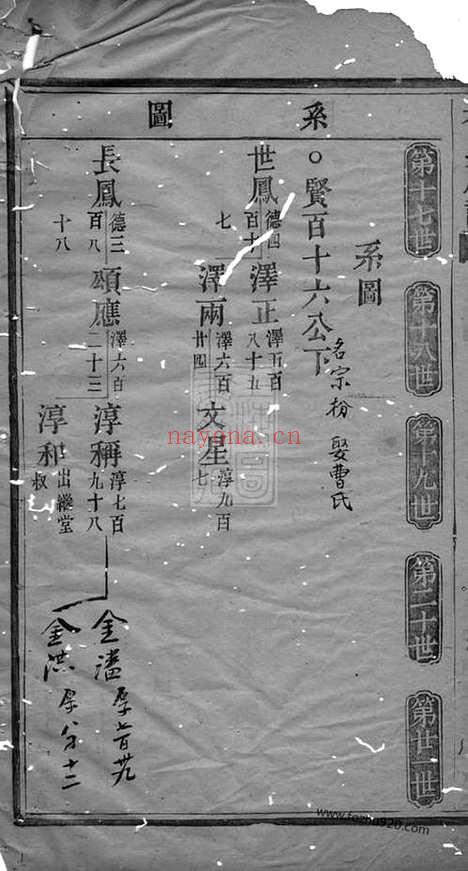 系圖
第十七世
第十八世
第十九世
第二十世
第廿一世
系圖
○賢百十六公下 名宗枌 娶曹氏
世鳳 德四百十七
澤正 澤五百八十五
澤兩 澤六百廿四
文星 淳九百七
長鳳 德三百八十八
頌應 澤六百二十三
淳稱 淳七百九十八
淳和 出繼堂叔
金潘 厚百廿九
金洪
nayona.cn
www.fozhu920.com